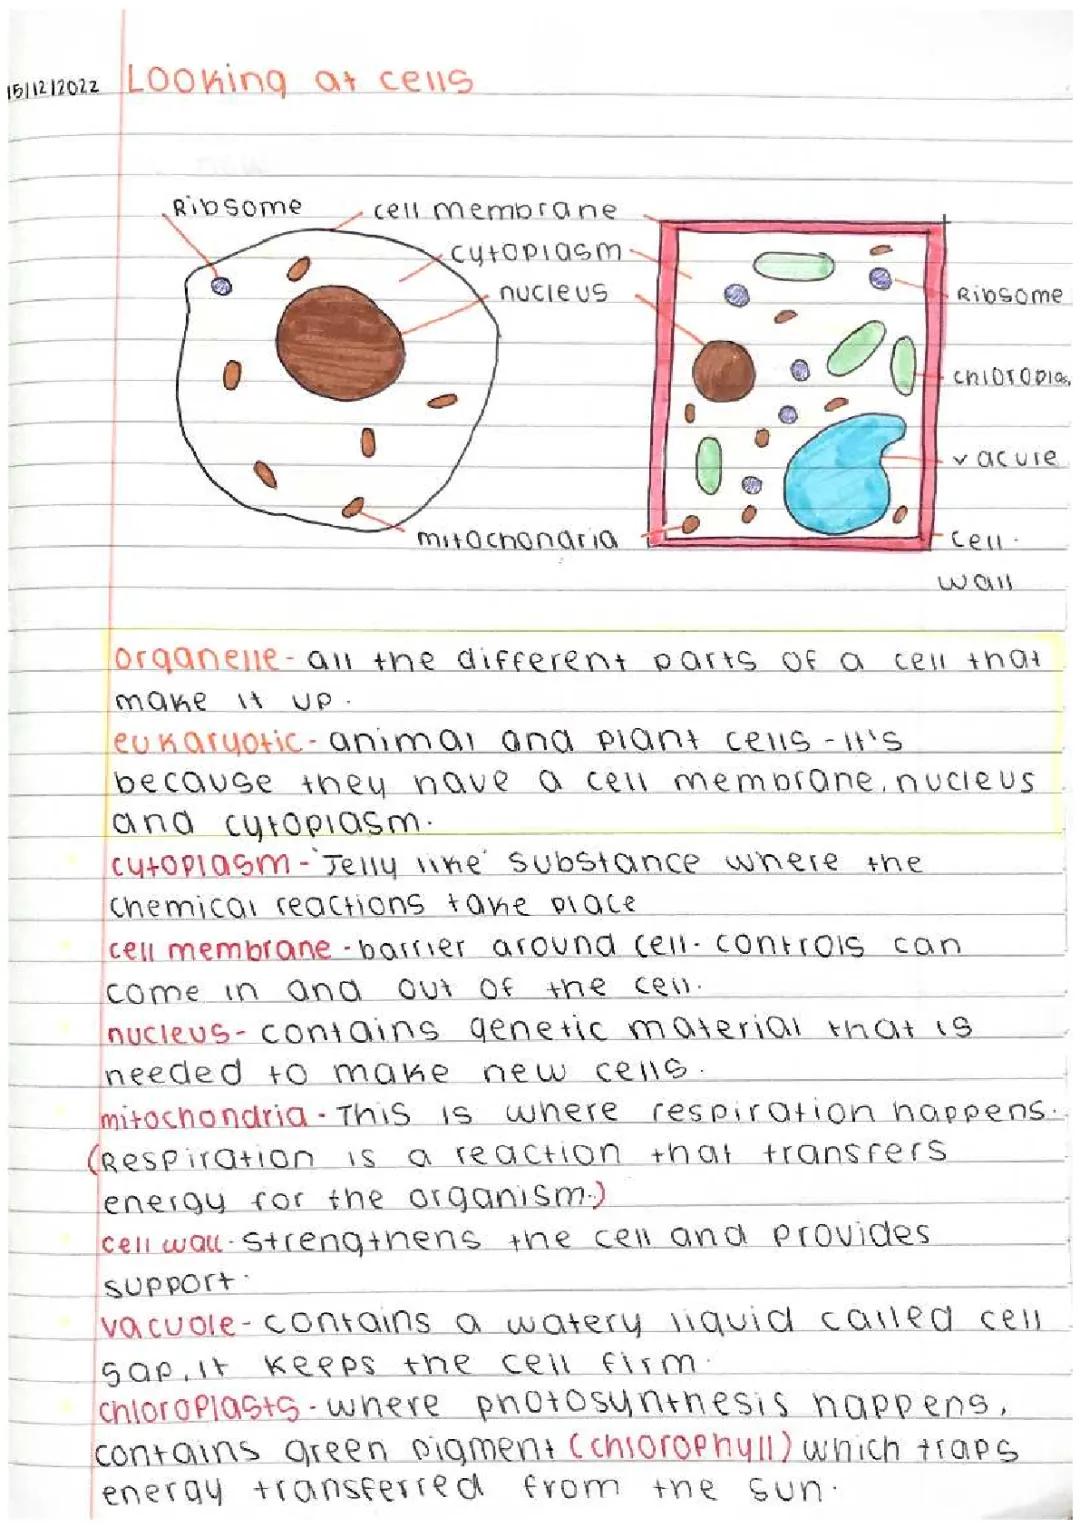 15/12/2022 Looking at cells
Ribsome
cell membrane
cytoplasm
nucleus
Ribsome
chloroplas
vacule
mitochondria
cell
wall
organelle - all the different parts of a cell that
make it up.
eukaryotic - animal and plant cells - it's
because they have a cell membrane, nucleus
and cytoplasm.
cytoplasm - 'Jelly like' substance where the
chemical reactions take place
cell membrane - barrier around cell. controls can
come in and out of the cell.
nucleus - contains genetic material that is
needed to make new cells.
mitochondria - This is where respiration happens.
(Respiration is a reaction that transfers
energy for the organism.)
cell wall - strengthens the cell and provides
support.
vacuole - contains a watery liquid called cell
sap, it keeps the cell firm.
chloroplasts - where photosynthesis happens,
contains green pigment (chlorophyll) which traps
energy transferred from the sun.